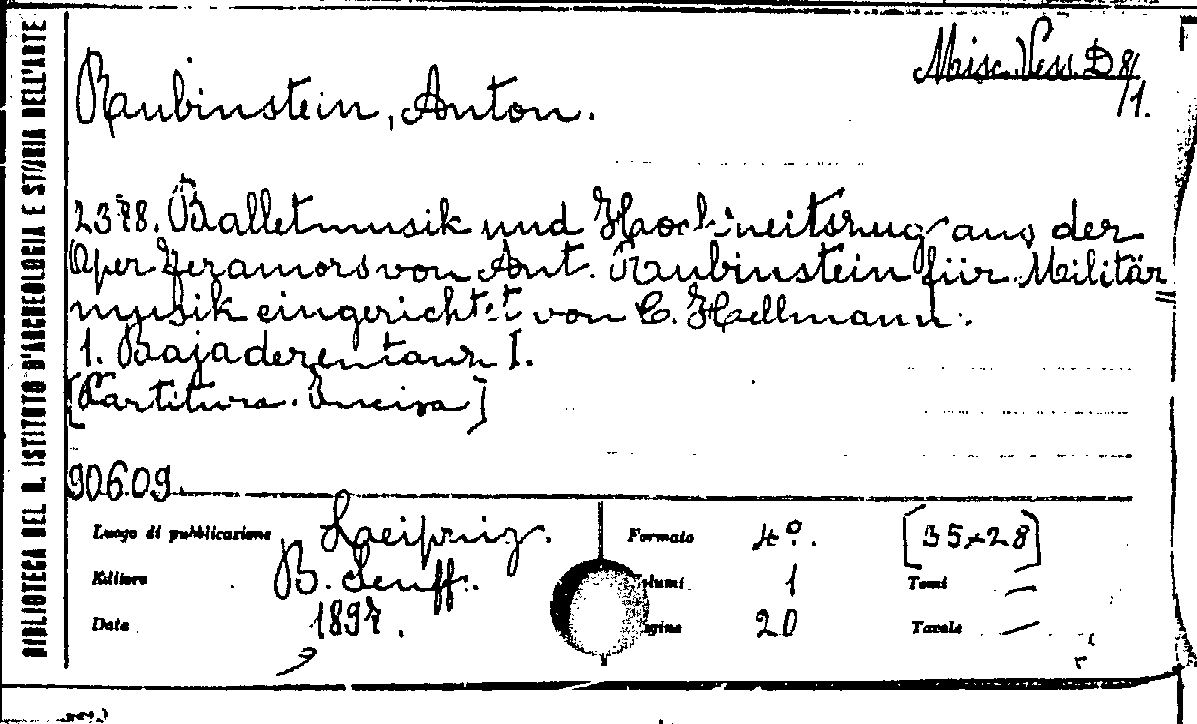 BIBLIOTECA DEL R. ISTITUTO D'ARCHEOLOGIA E STORIA DELL'ARTE
Misc. Vess. D 8/
/1.
Rubinstein, Anton.
2378. Balletmusik und Hochzeitszug aus der
Oper Feramors von Ant. Rubinstein für Militär
musik eingerichtet von C. Hellmann.
1. Bajaderentanz I.
[Partitura. Incisa]
90609.
Luogo di pubblicazione Leipzig.
Formato 4º. [35×28]
Editore B. Senff.
Volumi 1 Tomi —
Data 1897.
Pagine 20 Tavole —